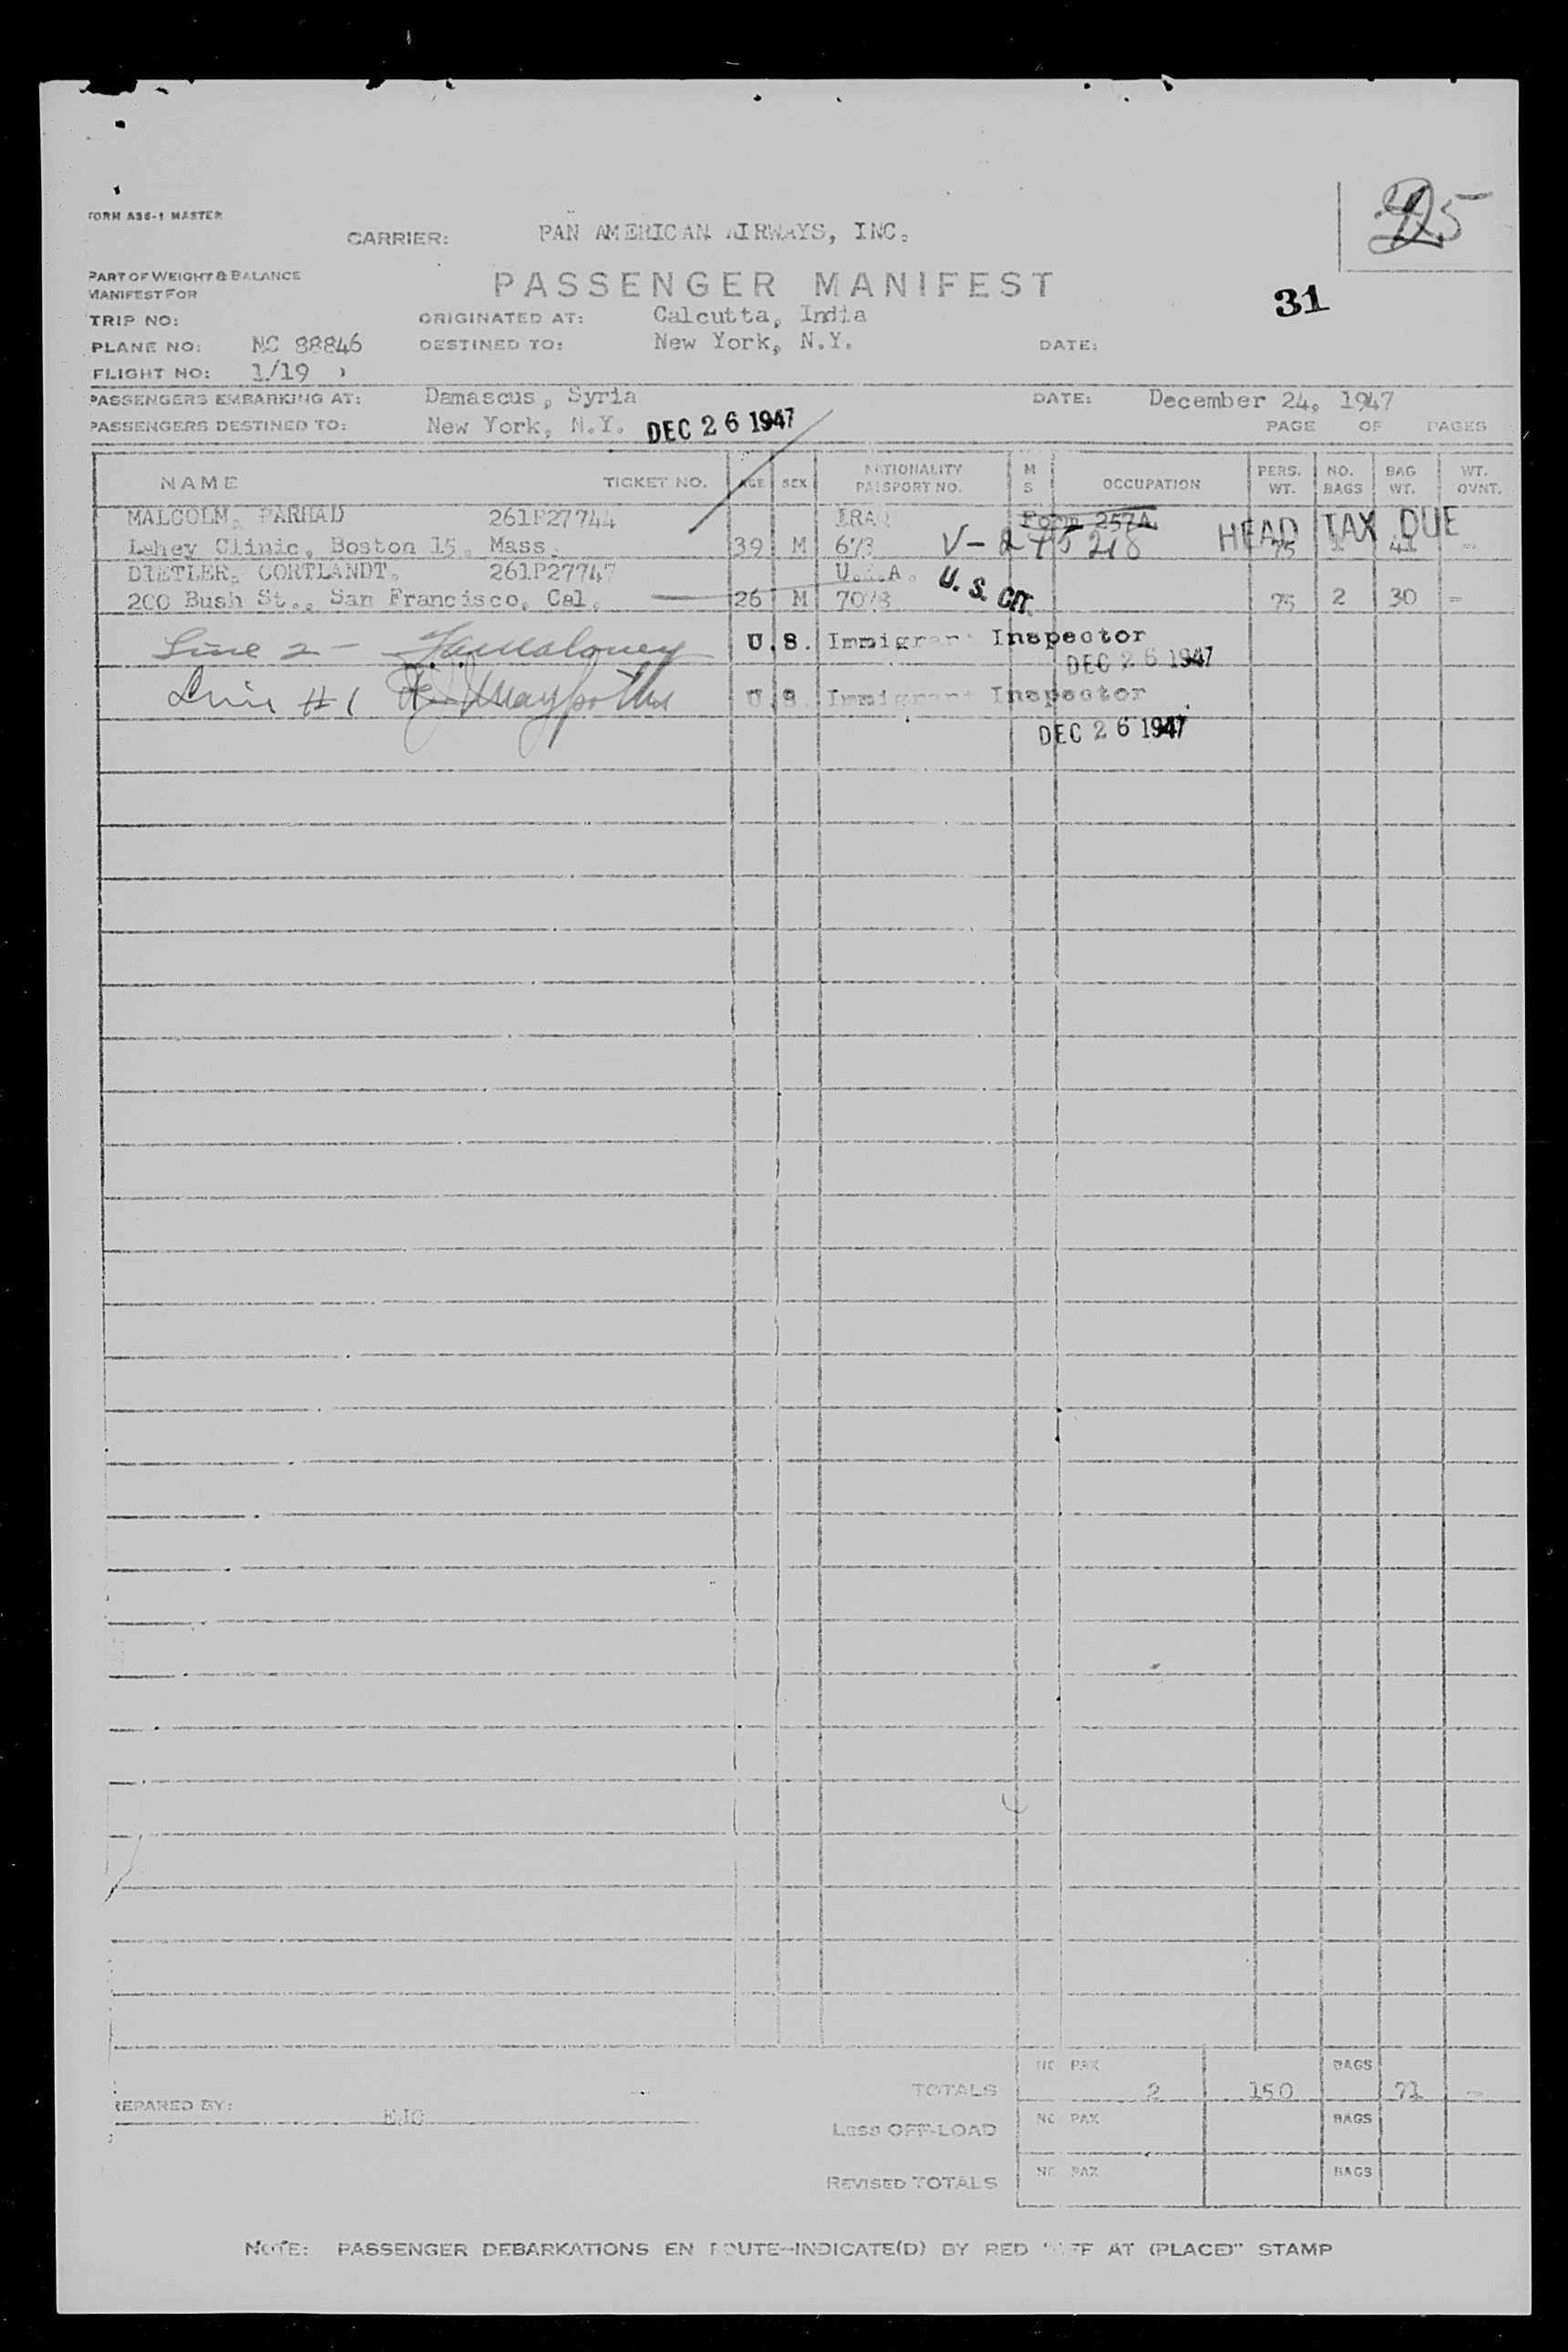 FORM A36-1 MASTER
25
CARRIER: PAN AMERICAN AIRWAYS, INC.
PART OF WEIGHT & BALANCE
MANIFEST FOR
PASSENGER MANIFEST
31
TRIP NO: ORIGINATED AT: Calcutta, India
PLANE NO: NC 88846 DESTINED TO: New York, N.Y. DATE:
FLIGHT NO: 1/19
PASSENGERS EMBARKING AT: Damascus, Syria DATE: December 24, 1947
PASSENGERS DESTINED TO: New York, N.Y. DEC 26 1947 PAGE OF PAGES
NAME TICKET NO. AGE SEX NATIONALITY PASSPORT NO. M S OCCUPATION PERS. WT. NO. BAGS BAG WT. WT. OVNT.
MALCOLM, FARHAD 261P27744 IRAQ Form 257A HEAD TAX DUE
Lahey Clinic, Boston 15, Mass. 39 M 673 V-245218 75 1 41 -
DIETLER, CORTLANDT, 261P27747 U.S.A. U.S. CIT.
200 Bush St., San Francisco, Cal. 26 M 7078 75 2 30 -
Line 2 - U.S. Immigrant Inspector
DEC 26 1947
Line #1 U.S. Immigrant Inspector
DEC 26 1947
NO PAX BAGS
TOTALS 2 150 71 -
REPARED BY: EJC
NO PAX BAGS
LESS OFF-LOAD
NO PAX BAGS
REVISED TOTALS
NOTE: PASSENGER DEBARKATIONS EN ROUTE-INDICATE(D) BY RED "OFF AT (PLACE)" STAMP